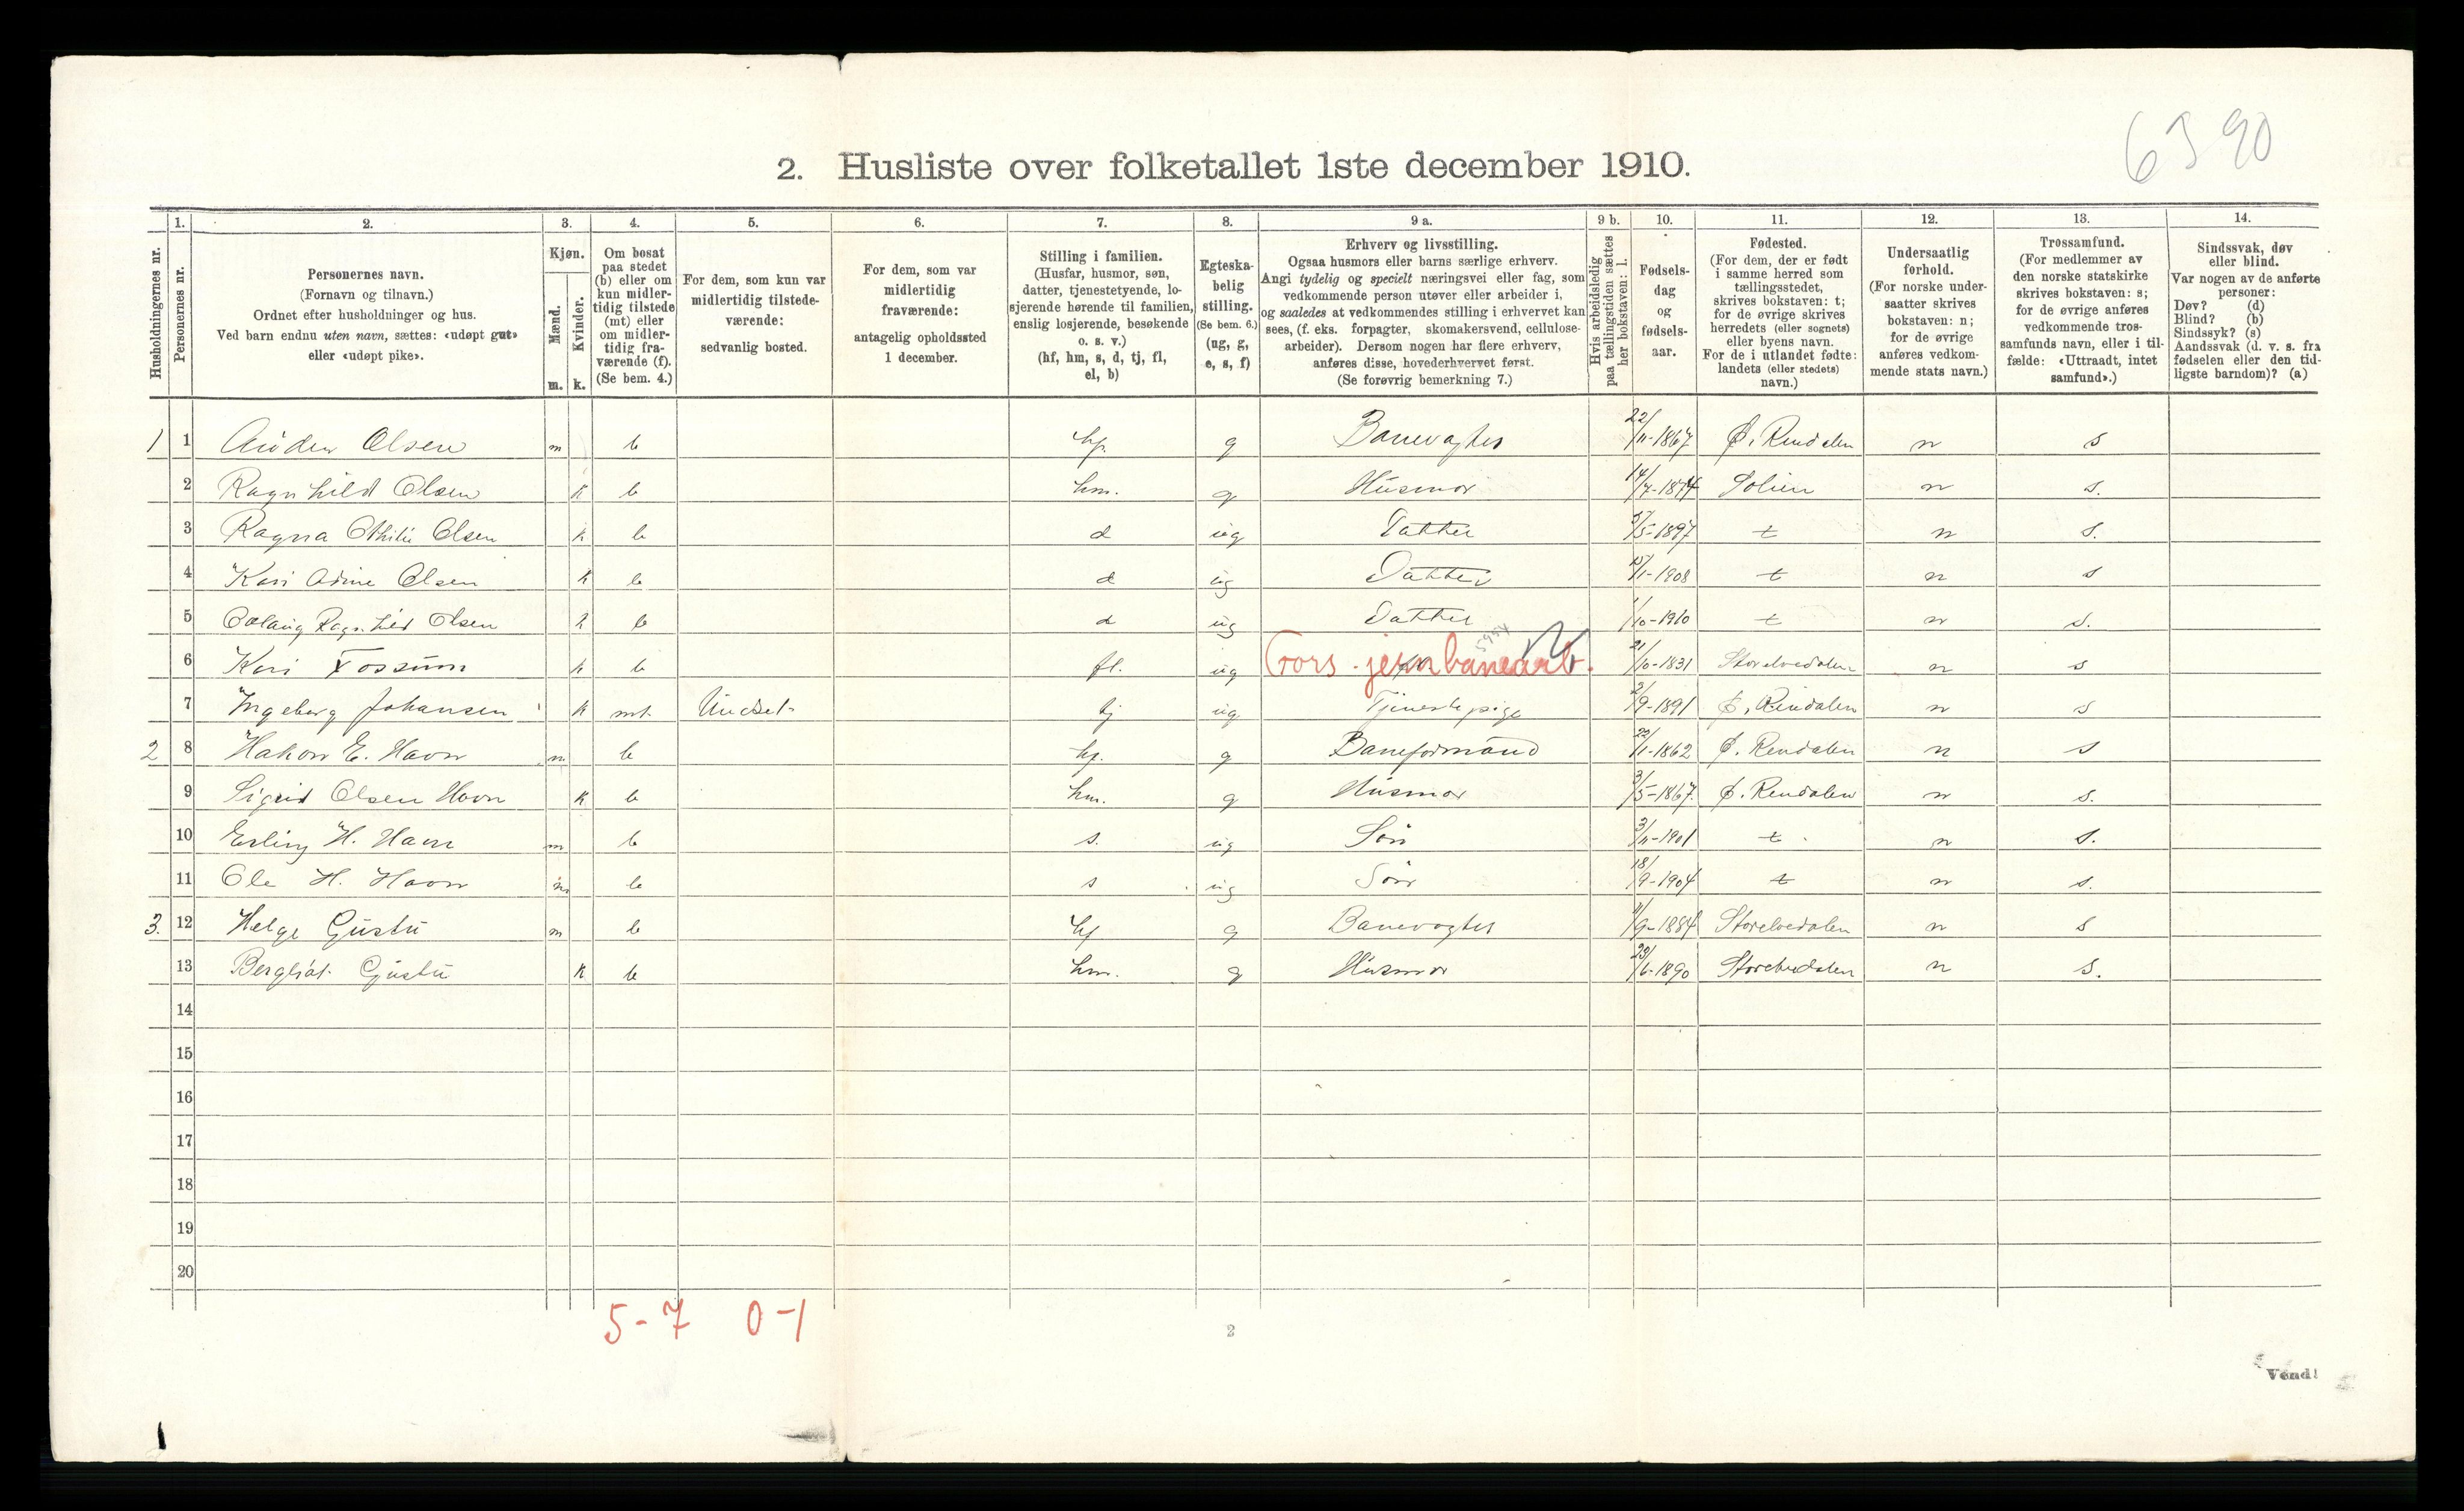 6390
2. Husliste over folketallet 1ste december 1910.
Husholdningernes nr.
1. Personernes nr.
2. Personernes navn. (Fornavn og tilnavn.) Ordnet efter husholdninger og hus. Ved barn endnu uten navn, sættes: «udøpt gut» eller «udøpt pike».
3. Kjøn. Mænd. m. Kvinder. k.
4. Om bosat paa stedet (b) eller om kun midlertidig tilstede (mt) eller om midlertidig fraværende (f). (Se bem. 4.)
5. For dem, som kun var midlertidig tilstedeværende: sedvanlig bosted.
6. For dem, som var midlertidig fraværende: antagelig opholdssted 1 december.
7. Stilling i familien. (Husfar, husmor, søn, datter, tjenestetyende, losjerende hørende til familien, enslig losjerende, besøkende o. s. v.) (hf, hm, s, d, tj, fl, el, b)
8. Egteskabelig stilling. (Se bem. 6.) (ug, g, e, s, f)
9 a. Erhverv og livsstilling. Ogsaa husmors eller barns særlige erhverv. Angi tydelig og specielt næringsvei eller fag, som vedkommende person utøver eller arbeider i, og saaledes at vedkommendes stilling i erhvervet kan sees, (f. eks. forpagter, skomakersvend, cellulosearbeider). Dersom nogen har flere erhverv, anføres disse, hovederhvervet først. (Se forøvrig bemerkning 7.)
9 b. Hvis arbeidsledig paa tællingstiden sættes her bokstaven: l.
10. Fødselsdag og fødselsaar.
11. Fødested. (For dem, der er født i samme herred som tællingsstedet, skrives bokstaven: t; for de øvrige skrives herredets (eller sognets) eller byens navn. For de i utlandet fødte: landets (eller stedets) navn.)
12. Undersaatlig forhold. (For norske undersaatter skrives bokstaven: n; for de øvrige anføres vedkommende stats navn.)
13. Trossamfund. (For medlemmer av den norske statskirke skrives bokstaven: s; for de øvrige anføres vedkommende trossamfunds navn, eller i tilfælde: «Uttraadt, intet samfund».)
14. Sindssvak, døv eller blind. Var nogen av de anførte personer: Døv? (d) Blind? (b) Sindssyk? (s) Aandssvak (d. v. s. fra fødselen eller den tidligste barndom)? (a)
1 1 Auden Olsen m b hf. g Banevagter 22/11-1867 Ø. Rendalen n s
2 Ragnhild Olsen k b hm. g Husmor 14/7-1874 Solien n s.
3 Ragna Othilie Olsen k b d ug Datter 5/5-1897 t n s.
4 Kari Adine Olsen k b d ug Datter 15/1-1908 t n s
5 Ragnhild Olsen k b d ug Datter 1/10-1910 t n s.
6 Kari Fossum k b fl. ug Fors. jernbanearb. 21/10-1831 Storelvedalen n s
7 Ingeborg Johansen k mt. Undset tj ug Tjenestepige 2/9-1891 Ø. Rendalen n s
2 8 Hakon E. Havn m b hf. g Baneformand 22/11-1862 Ø. Rendalen n s
9 Sigrid Olsen Havn k b hm. g Husmor 3/5-1867. Ø. Rendalen n s.
10 Erling H. Havn m b s. ug Søn 3/11-1901 t n s.
11 Ole H. Havn m b s ug Søn 18/9-1904 t n s.
3. 12 Helge Gustu m b hf g Banevogter 11/9-1884 Storelvedalen n s
13 Bergliot Gjustu k b hm. g Husmor 23/6-1890 Storelvedalen n s.
14
15
16
17
18
19
20
5-7 0-1
2
Vend!